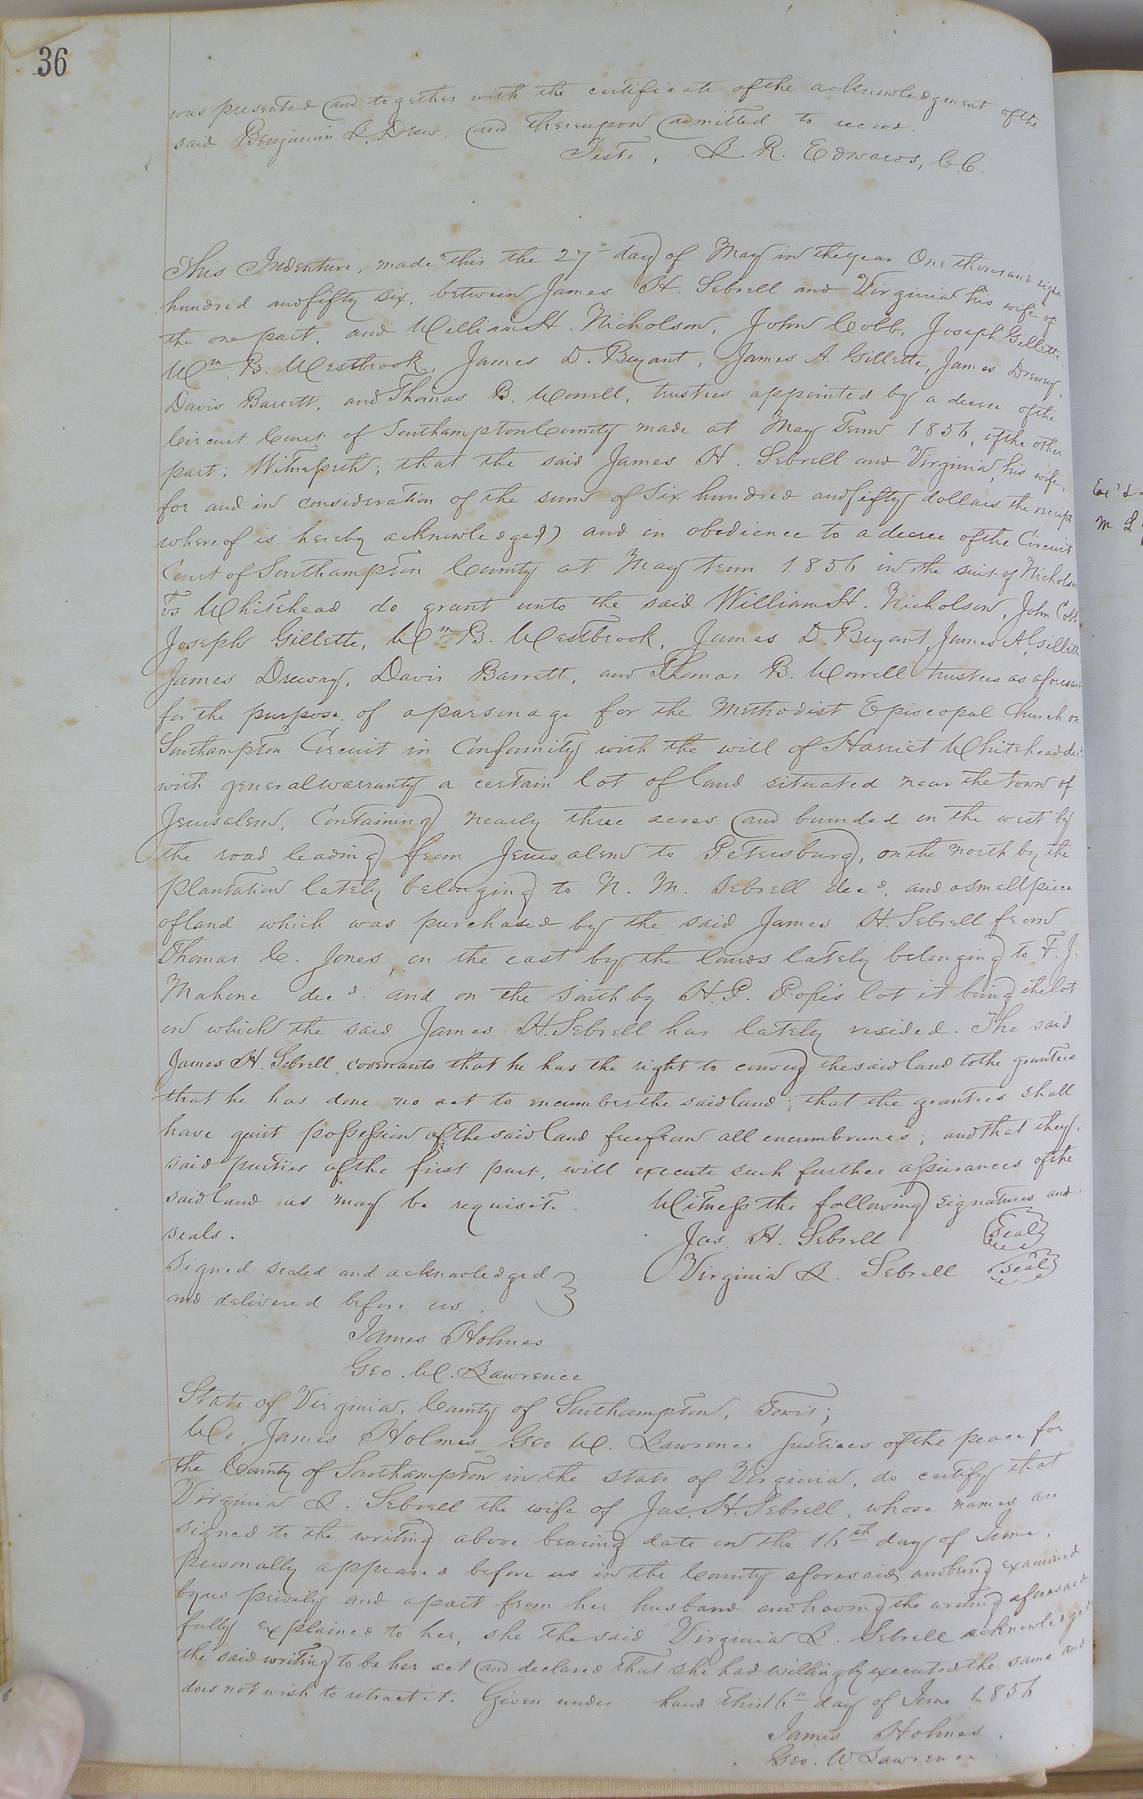 36
was presented and together with the certificate of the acknowledgment of the
said Benjamin Drew. and thereupon admitted to record.
Teste, L R. Edwards, C.C.
This Indenture, made this the 27" day of May in the year One thousand eight
hundred and fifty six, between James H. Sebrell and Virginia his wife of
the one part, and William H. Nicholson, John Cobb, Joseph Gillette,
Wm. B. Westbrook, James D. Bryant, James A. Gillette, James Drewry,
Davis Barrett, and Thomas B. Worrell, trustees appointed by a decree of the
Circuit Court of Southampton County made at May Term 1856, of the other
part: Witnesseth, that the said James H. Sebrell and Virginia, his wife,
for and in consideration of the sum of Six hundred and fifty dollars the receipt
whereof is hereby acknowledged) and in obedience to a decree of the Circuit
Court of Southampton County at May term 1856 in the suit of Nicholson
vs Whitehead do grant unto the said William H. Nicholson, John Cobb
Joseph Gillette, Wm B. Westbrook, James D. Bryant, James A. Gillette
James Drewry, Davis Barrett, and Thomas B. Worrell trustees as aforesaid
for the purpose of a parsonage for the Methodist Episcopal Church on
Southampton Circuit in Conformity with the will of Harriet Whitehead dec.
with general warranty a certain lot of land situated near the town of
Jerusalem, Containing nearly three acres and bounded on the west by
the road leading from Jerusalem to Petersburg, on the north by the
plantation lately belonging to N. M. Sebrell decd. and a small piece
of land which was purchased by the said James H. Sebrell from
Thomas C. Jones, on the east by the lands lately belonging to F. J.
Mahone decd. and on the south by H. P. Pope's lot it being the lot
on which the said James H. Sebrell has lately resided. The said
James H. Sebrell covenants that he has the right to convey the said land to the grantees
that he has done no act to encumber the said land; that the grantees shall
have quiet possession of the said land free from all encumbrances; and that they,
said parties of the first part, will execute such further assurances of the
said land as may be requisite. Witness the following signatures and
seals.
Jas H. Sebrell Seal
Signed sealed and acknowledged
Virginia L. Sebrell Seal
and delivered before us.
James Holmes
Geo. W. Lawrence
State of Virginia, County of Southampton, Towit;
We, James Holmes Geo W. Lawrence Justices of the peace for
the County of Southampton in the state of Virginia, do certify that
Virginia L. Sebrell the wife of Jas. H. Sebrell, whose names are
signed to the writing above bearing date on the 16th day of June,
personally appeared before us in the County aforesaid, and being examined
by us privily and apart from her husband and having the writing aforesaid
fully explained to her, she the said Virginia L. Sebrell acknowledged
the said writing to be her act and declared that she had willingly executed the same and
does not wish to retract it. Given under hand this 16" day of June 1856
James Holmes.
Geo. W Lawrence